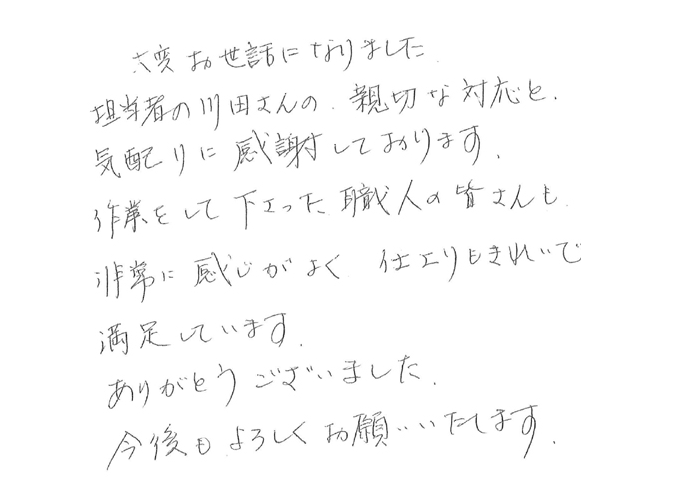 大変お世話になりました
担当者の川田さんの、親切な対応と、
気配りに感謝しております、
作業をして下さった職人の皆さんも
非常に感じがよく 仕上りもきれいで
満足しています.
ありがとうございました.
今後もよろしくお願いいたします.